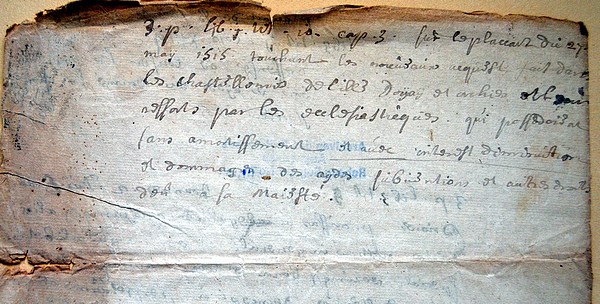 cap. 3. sur le placcart du 27
may 1515 touchant les nouveaux acquest fait dans
les chastellenies de lille Douay et orchies et leurs
ressorts par les ecclesiastiques. qui possedoient
sans amortissement et avec interest diminution
et dommage des aydes subventions et autres droits
deus a sa Maiesté.